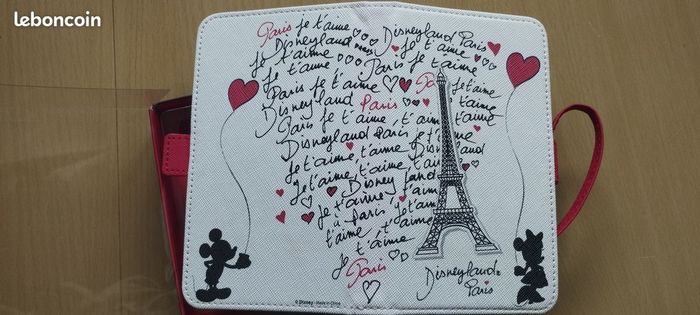 leboncoin
Paris je t'aime
Disneyland Paris
Disneyland
Je t'aime
Je t'aime
je t'aime
Paris je t'aime
Paris je t'aime
Paris
Je t'aime
Disneyland Paris
t'aime
Paris je t'aime, t'aime
t'aime
Disneyland Paris je t'aime
Je t'aime, t'aime, t'aime Disneyland
Je t'aime, t'aime, t'aime
Disneyland
Je t'aime t'aime, t'aime
à Paris, Je t'aime
t'aime, t'aime, t'aime
t'aime
Je
Paris
Disneyland
Paris
© Disney - Made in China